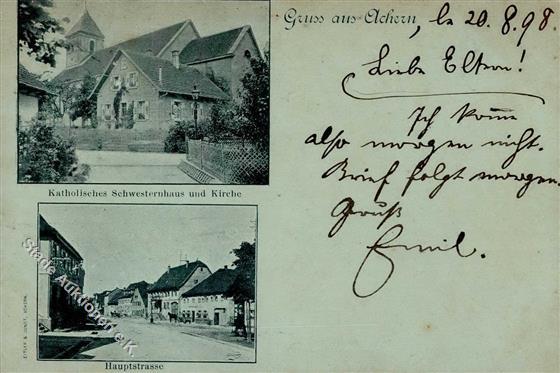 Gruss aus Achern, le 20.8.98.
Liebe Eltern!
Ich komme
also morgen nicht.
Brief folgt morgen.
Gruß
Emil.
Katholisches Schwesternhaus und Kirche
Hauptstrasse
Stade Auktionen e.K.